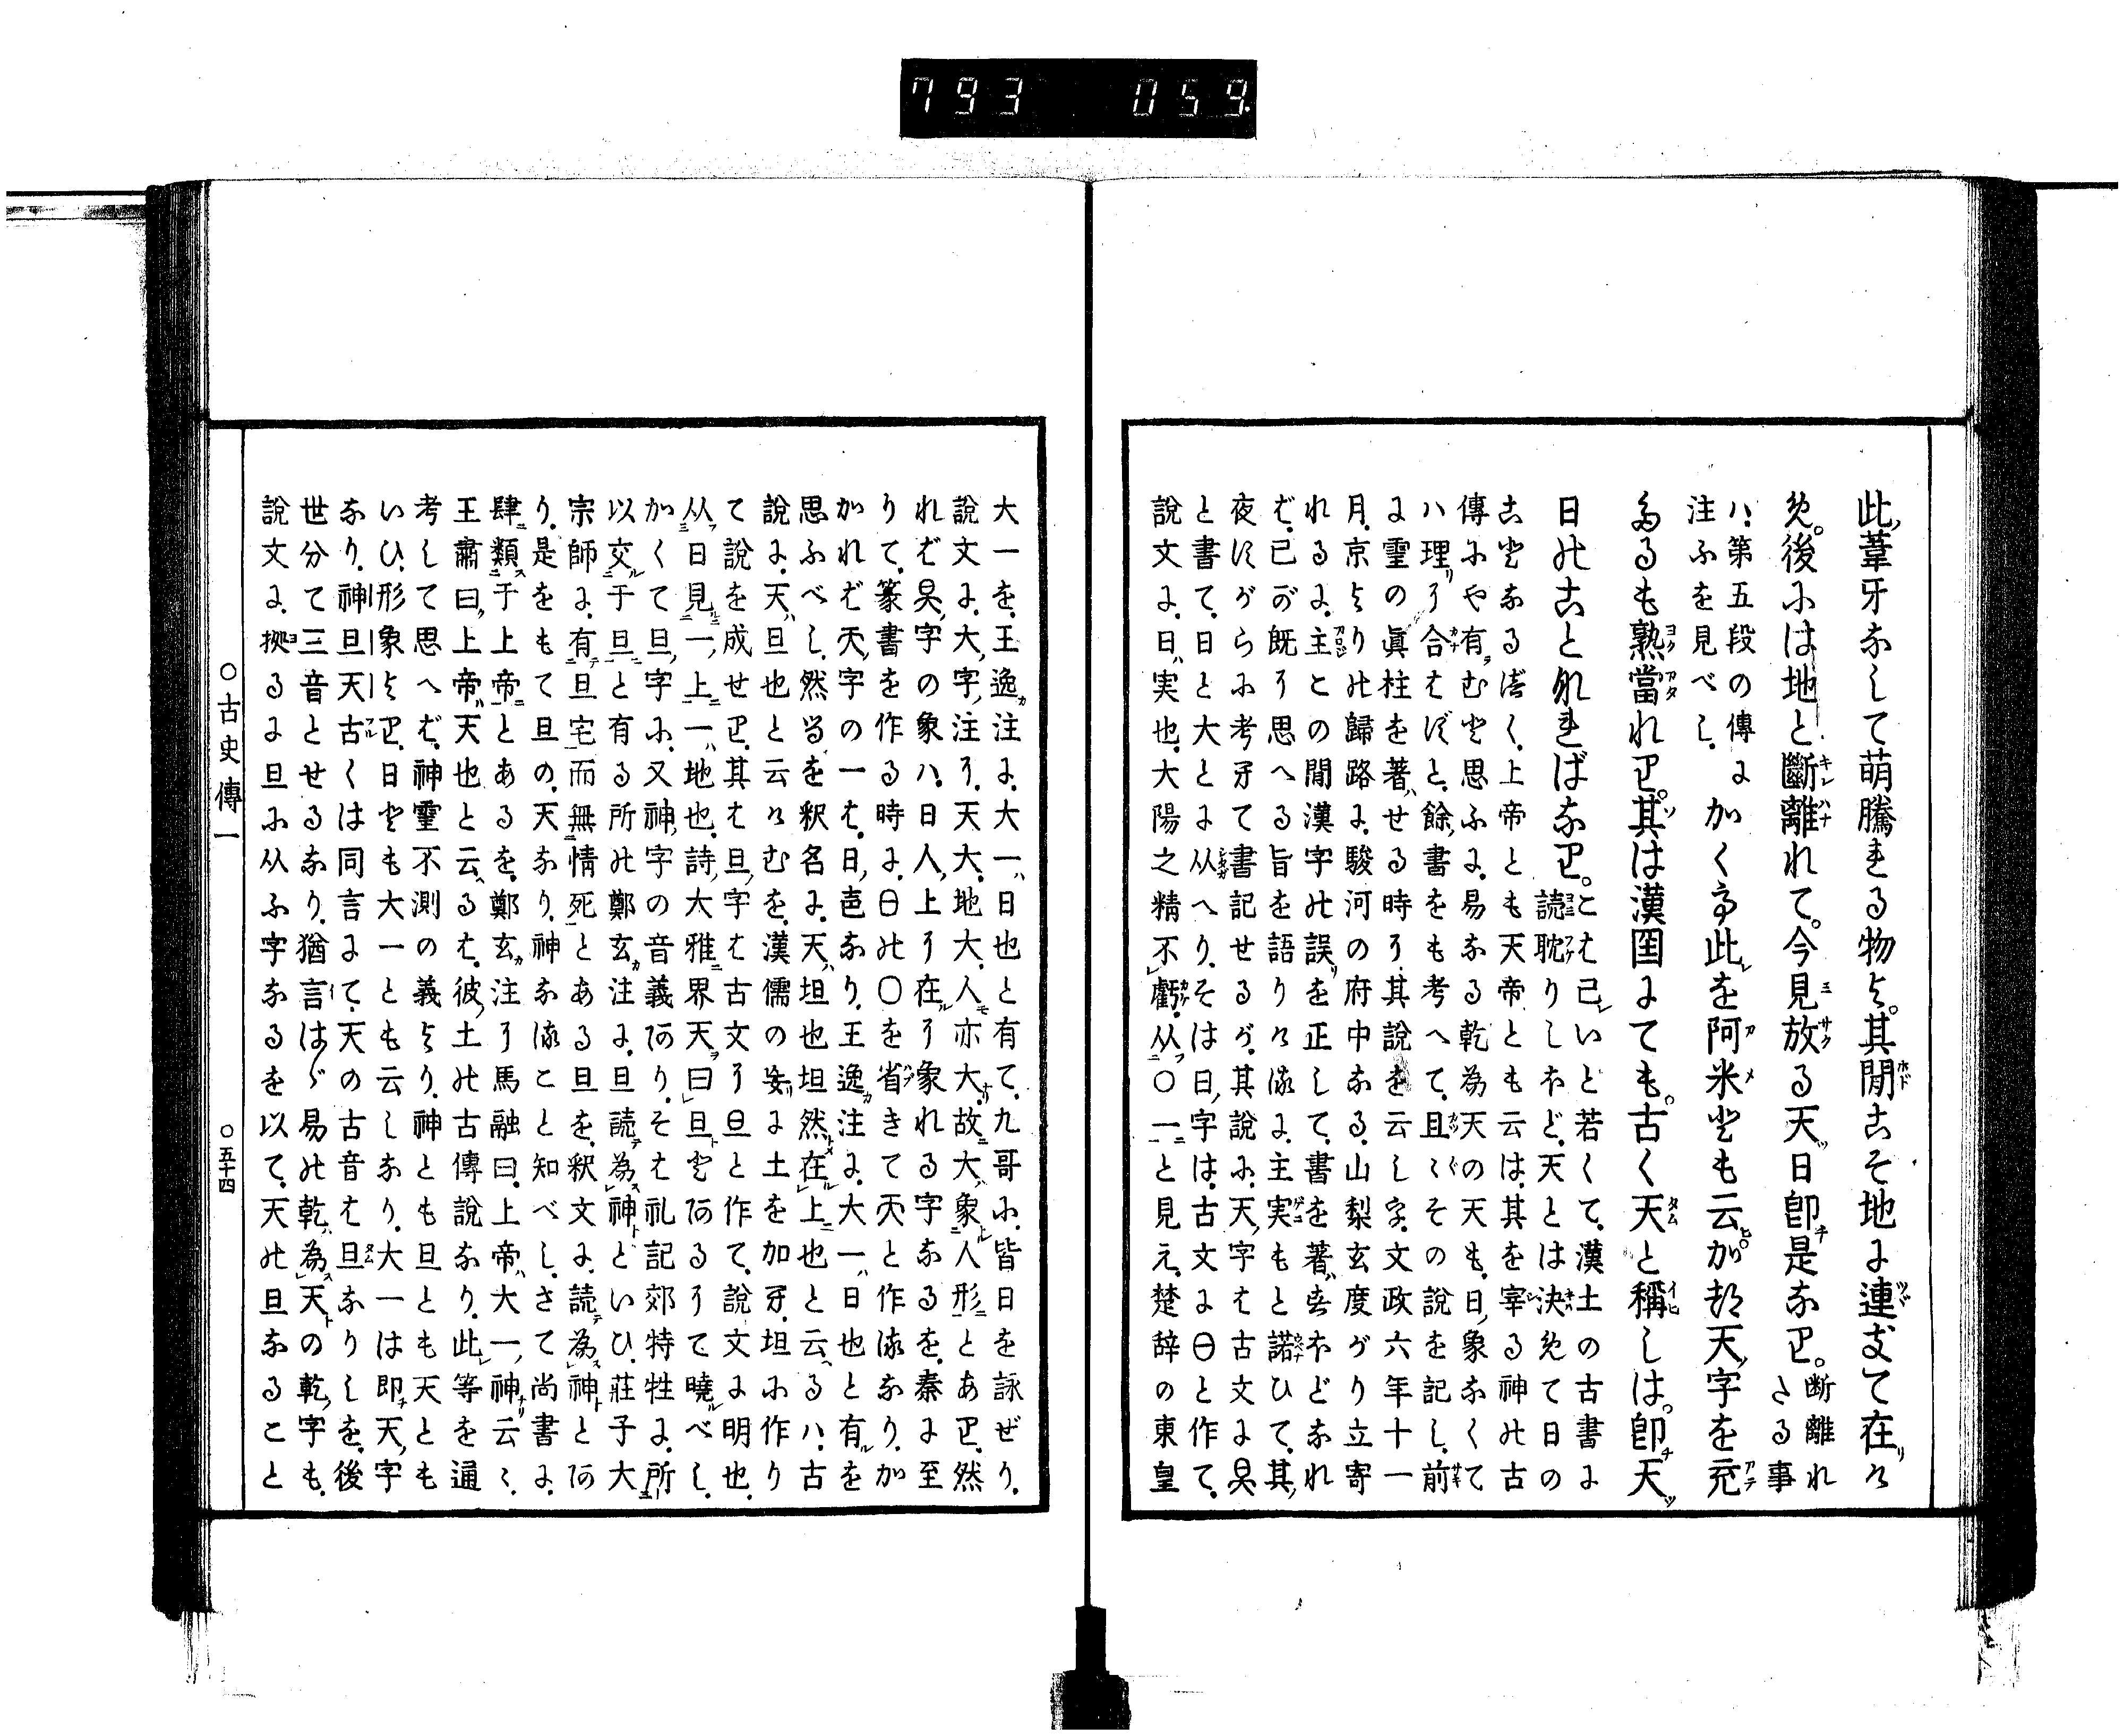 793 059
此葦牙なして萌騰れる物を。其間こそ地に連きて在け
め。後には地と斷離れて。今見放る天日即是なり。断離れたる事
は、第五段の傳に注ふを見べし。
かく て此を阿米とも云が如天字を充
たるも熟當れり。其は漢国にても。古く天と稱しは。即天
日のことなればなり。こは己いと若くて、漢土の古書に
読耽りしほど、天とは決めて日の
ことなるべく、上帝とも天帝とも云は、其を宰る神の古
傳にや有むと思ふに、易なる乾為天の天も、日象なくて
ハ理り合はずと、餘書をも考へて、且〻その説を記し、前
に霊の眞柱を著せる時り其説を云し字、文政六年十一
月、京よりの歸路に、駿河の府中なる、山梨玄度がり立寄
れるに、主との間漢字の誤を正して、書を著はすほどなれ
ば、已が既り思へる旨を語りける に、主実もと諾ひて、其
夜すがらに考牙て書記せるが、其說に、天字は古文に昊
と書て、日と大とに从へり、そは日字は、古文に曰と作て、
說文に、日実也、大陽之精不虧、从〇一と見え、楚辞の東皇
大一を、王逸注に、大一日也と有て、九哥に、皆日を詠ぜり、
說文に、大字注り、天大、地大、人亦大、故大象人形とあり、然
れば昊字の象ハ、日人上り在り象れる字なるを、秦に至
りて、篆書を作る時に、日の〇を省きて天と作るなり、か
かれば天字の一は、日邑なり、王逸注に、大一日也と有を
思ふべし、然るを釈名に、天坦也坦然在上也と云るハ、古
說に、天旦也と云けむを、漢儒の妄に土を加牙、坦に作り
て說を成せり、其は旦字は古文り旦と作て、說文に明也、
从日見一上、一地也、詩大雅界天曰旦とあるりて曉べし、
かくて旦字に、又神字の音義あり、そは礼記郊特牲に、所
以交于旦と有る所の鄭玄注に、旦読為神といひ、莊子大
宗師に、有旦宅而無情死とある旦を、釈文に、読為神とあ
り、是をもて旦の、天なり、神なることと知べし、さて尚書に、
肆類于上帝とあるを、鄭玄注り馬融曰、上帝大一神云〻、
王肅曰、上帝天也と云るは、彼土の古傳說なり、此等を通
考して思へば、神霊不測の義より、神とも旦とも天とも
いひ、形象より、日とも大一とも云しなり、大一は即天字
なり、神旦天古くは同言にて、天の古音は旦なりしを、後
世分て三音とせるなり、猶言はゞ易の乾為天の乾字も、
說文に、拠るに旦に从ふ字なるを以て、天の旦なること
〇古史傳一
〇五十四